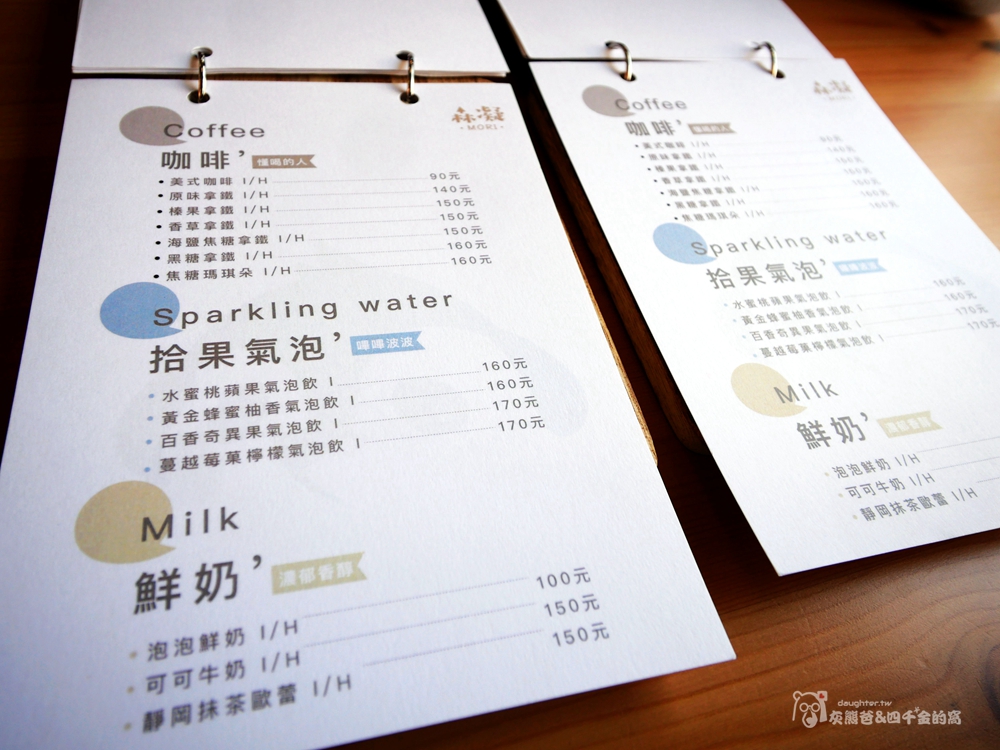 Coffee
森凝
·MORI·
咖啡’ 懂喝的人
• 美式咖啡 I/H 90元
• 原味拿鐵 I/H 140元
• 榛果拿鐵 I/H 150元
• 香草拿鐵 I/H 150元
• 海鹽焦糖拿鐵 I/H 150元
• 黑糖拿鐵 I/H 160元
• 焦糖瑪琪朵 I/H 160元
Sparkling water
拾果氣泡’ 嗶嗶波波
• 水蜜桃蘋果氣泡飲 I 160元
• 黃金蜂蜜柚香氣泡飲 I 160元
• 百香奇異果氣泡飲 I 170元
• 蔓越莓菓檸檬氣泡飲 I 170元
Milk
鮮奶’ 濃郁香醇
• 泡泡鮮奶 I/H 100元
• 可可牛奶 I/H 150元
• 靜岡抹茶歐蕾 I/H 150元
Coffee
森凝
MORI
咖啡’ 懂喝的人
• 美式咖啡 I/H 90元
• 原味拿鐵 I/H 140元
• 榛果拿鐵 I/H 150元
• 香草拿鐵 I/H 150元
• 海鹽焦糖拿鐵 I/H 150元
• 黑糖拿鐵 I/H 160元
• 焦糖瑪琪朵 I/H 160元
Sparkling water
拾果氣泡’ 嗶嗶波波
• 水蜜桃蘋果氣泡飲 I 160元
• 黃金蜂蜜柚香氣泡飲 I 160元
• 百香奇異果氣泡飲 I 170元
• 蔓越莓菓檸檬氣泡飲 I 170元
Milk
鮮奶’ 濃郁香醇
• 泡泡鮮奶 I/H
• 可可牛奶 I/H
• 靜岡抹茶歐蕾 I/H
daughter.tw
灰熊爸&四千金的窩